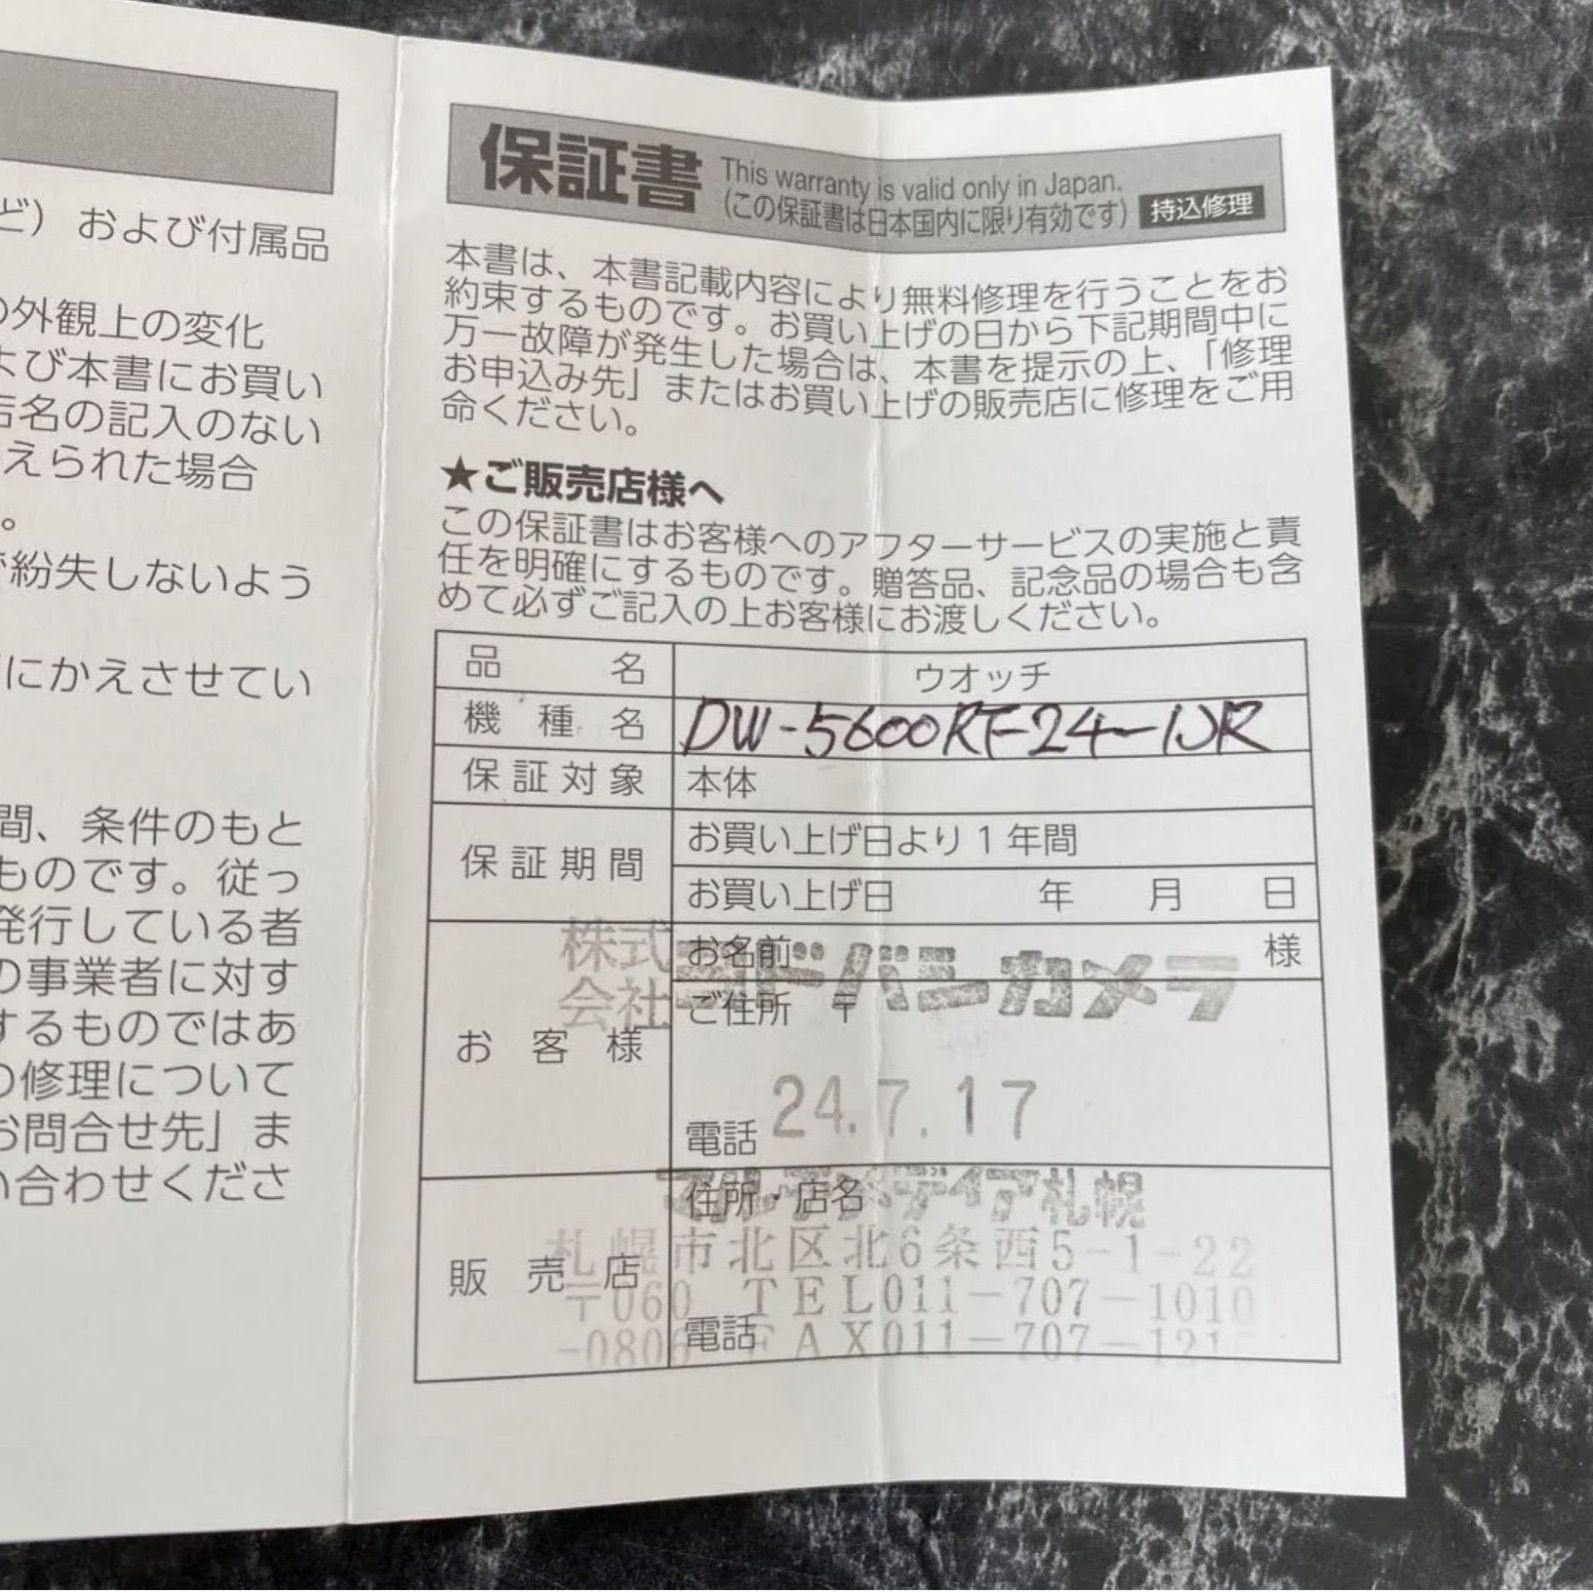 ど）および付属品
の外観上の変化
よび本書にお買い
店名の記入のない
えられた場合
。
紛失しないよう
にかえさせてい
間、条件のもと
ものです。従っ
発行している者
の事業者に対す
するものではあ
の修理について
お問合せ先」ま
い合わせくださ
保証書 This warranty is valid only in Japan.
（この保証書は日本国内に限り有効です） 持込修理
本書は、本書記載内容により無料修理を行うことをお
約束するものです。お買い上げの日から下記期間中に
万一故障が発生した場合は、本書を提示の上、「修理
お申込み先」またはお買い上げの販売店に修理をご用
命ください。
★ご販売店様へ
この保証書はお客様へのアフターサービスの実施と責
任を明確にするものです。贈答品、記念品の場合も含
めて必ずご記入の上お客様にお渡しください。
品名 ウオッチ
機種名 DW-5600RF-24-1JR
保証対象 本体
保証期間 お買い上げ日より1年間
お買い上げ日 年 月 日
お客様 お名前 様
株式会社ヨドバシカメラ
ご住所 〒
24.7.17
電話
販売店 住所・店名
マルチメディア札幌
札幌市北区北6条西5-1-22
〒060-0806 TEL011-707-1010
電話 FAX011-707-